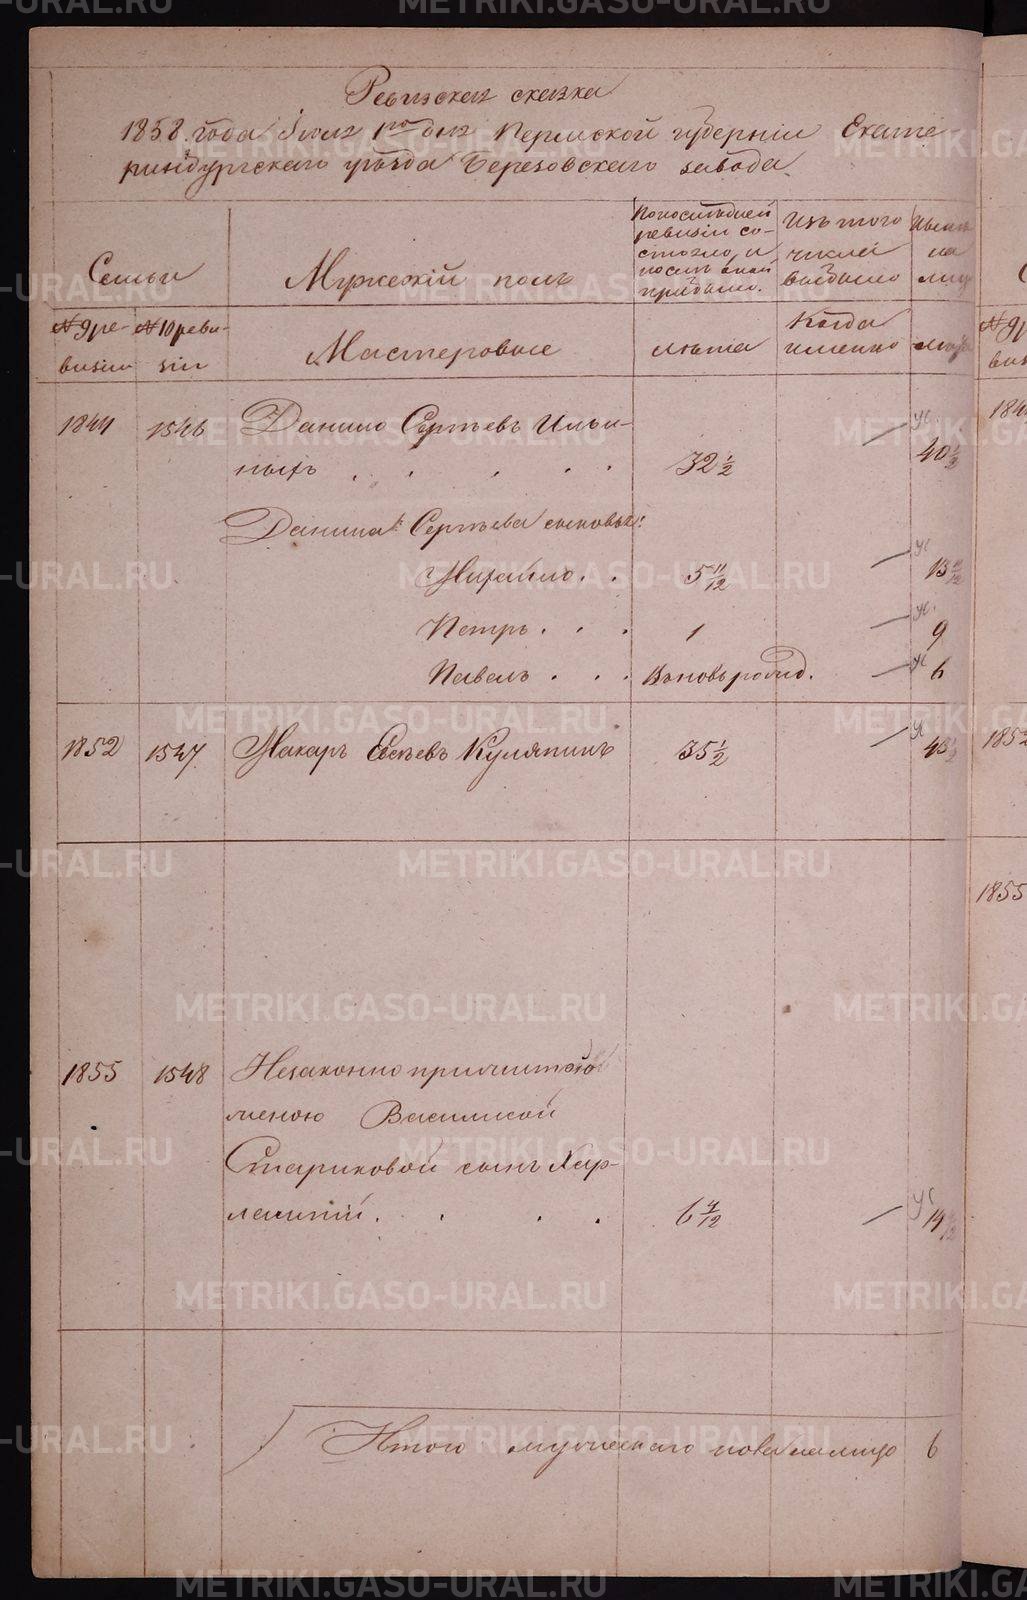 METRIKI.GASO-URAL.RU
Ревизская сказка
1858 года Іюля 1го дня Пермской губерніи Екате
ринбургскаго уѣзда Березовскаго завода.
Семьи
Мужескій полъ
По последней ревизіи состояло и послѣ оной прибыло.
Изъ того числа выбыло
на лицо
№ 9 ре-
визіи
№ 10 реви-
зіи
Мастеровые
лѣта
Когда
именно
1844 1546 Данило Сергѣевъ Ильи-
ныхъ . . . . . 32 1/2 — 40 1/2
Данила Сергѣева сыновья:
Михайло . . 5 11/12 — 13 11/12
Петръ . . . 1 — 9
Павелъ . . . Вновь рожд. — 6
1852 1547 Макаръ Евсѣевъ Кулятинъ 35 1/2 — 43 1/2
1855 1548 Незаконно прижитой
женою Василисой
Стариковой сынъ Хар-
лампій . . . . 6 4/12 — 14 4/12
Итого мужескаго пола на лицо 6
1852
1855